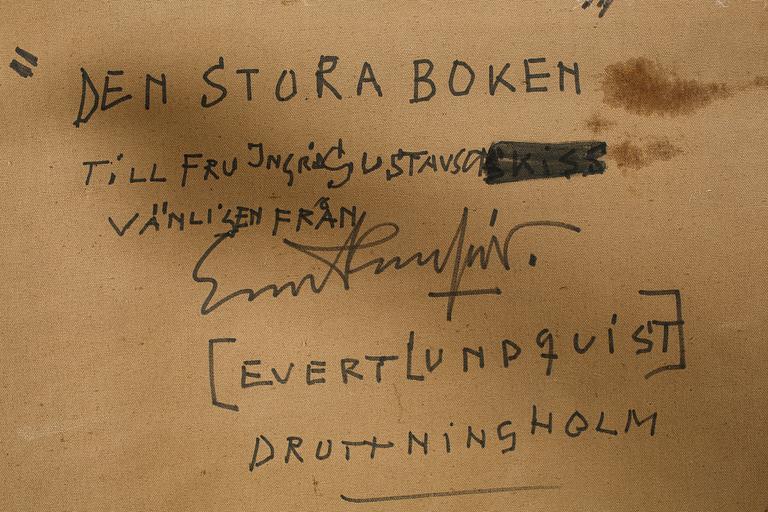 " DEN STORA BOKEN "
TILL FRU INGRID GUSTAVSON SKISS
VÄNLIGEN FRÅN
[EVERT LUNDQUIST]
DROTTNINGHOLM